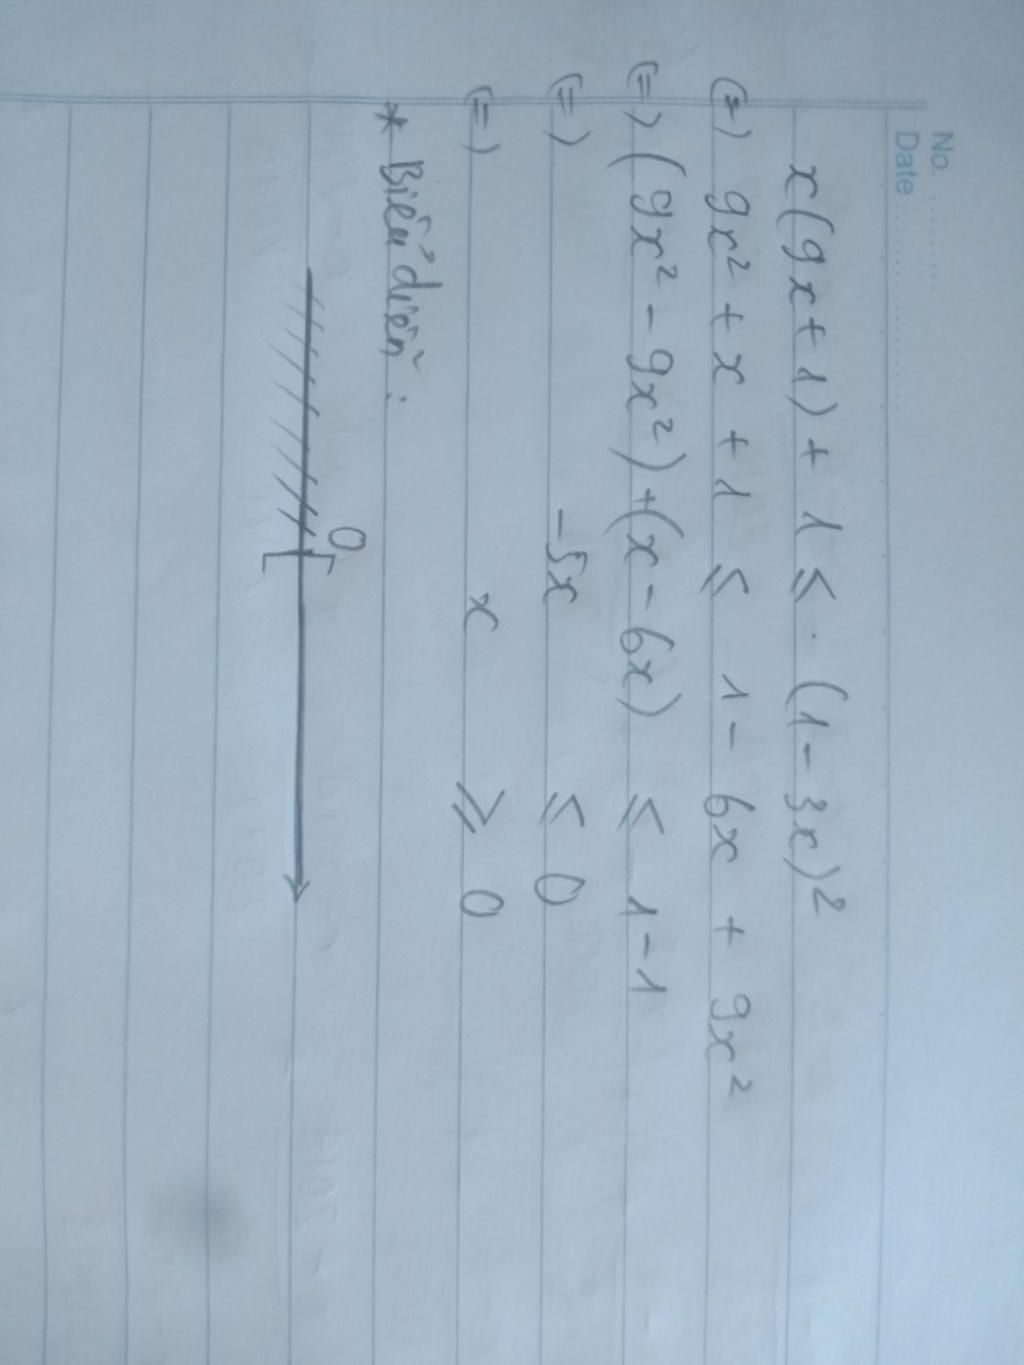 No. ........
Date ..................
x(9x+1) + 1 ≤ . (1-3x)²
(=) 9x² + x + 1 ≤ 1 - 6x + 9x²
(=) (9x² - 9x²) + (x - 6x) ≤ 1 - 1
(=) -5x ≤ 0
(=) x ≥ 0
* Biểu diễn :
0
[